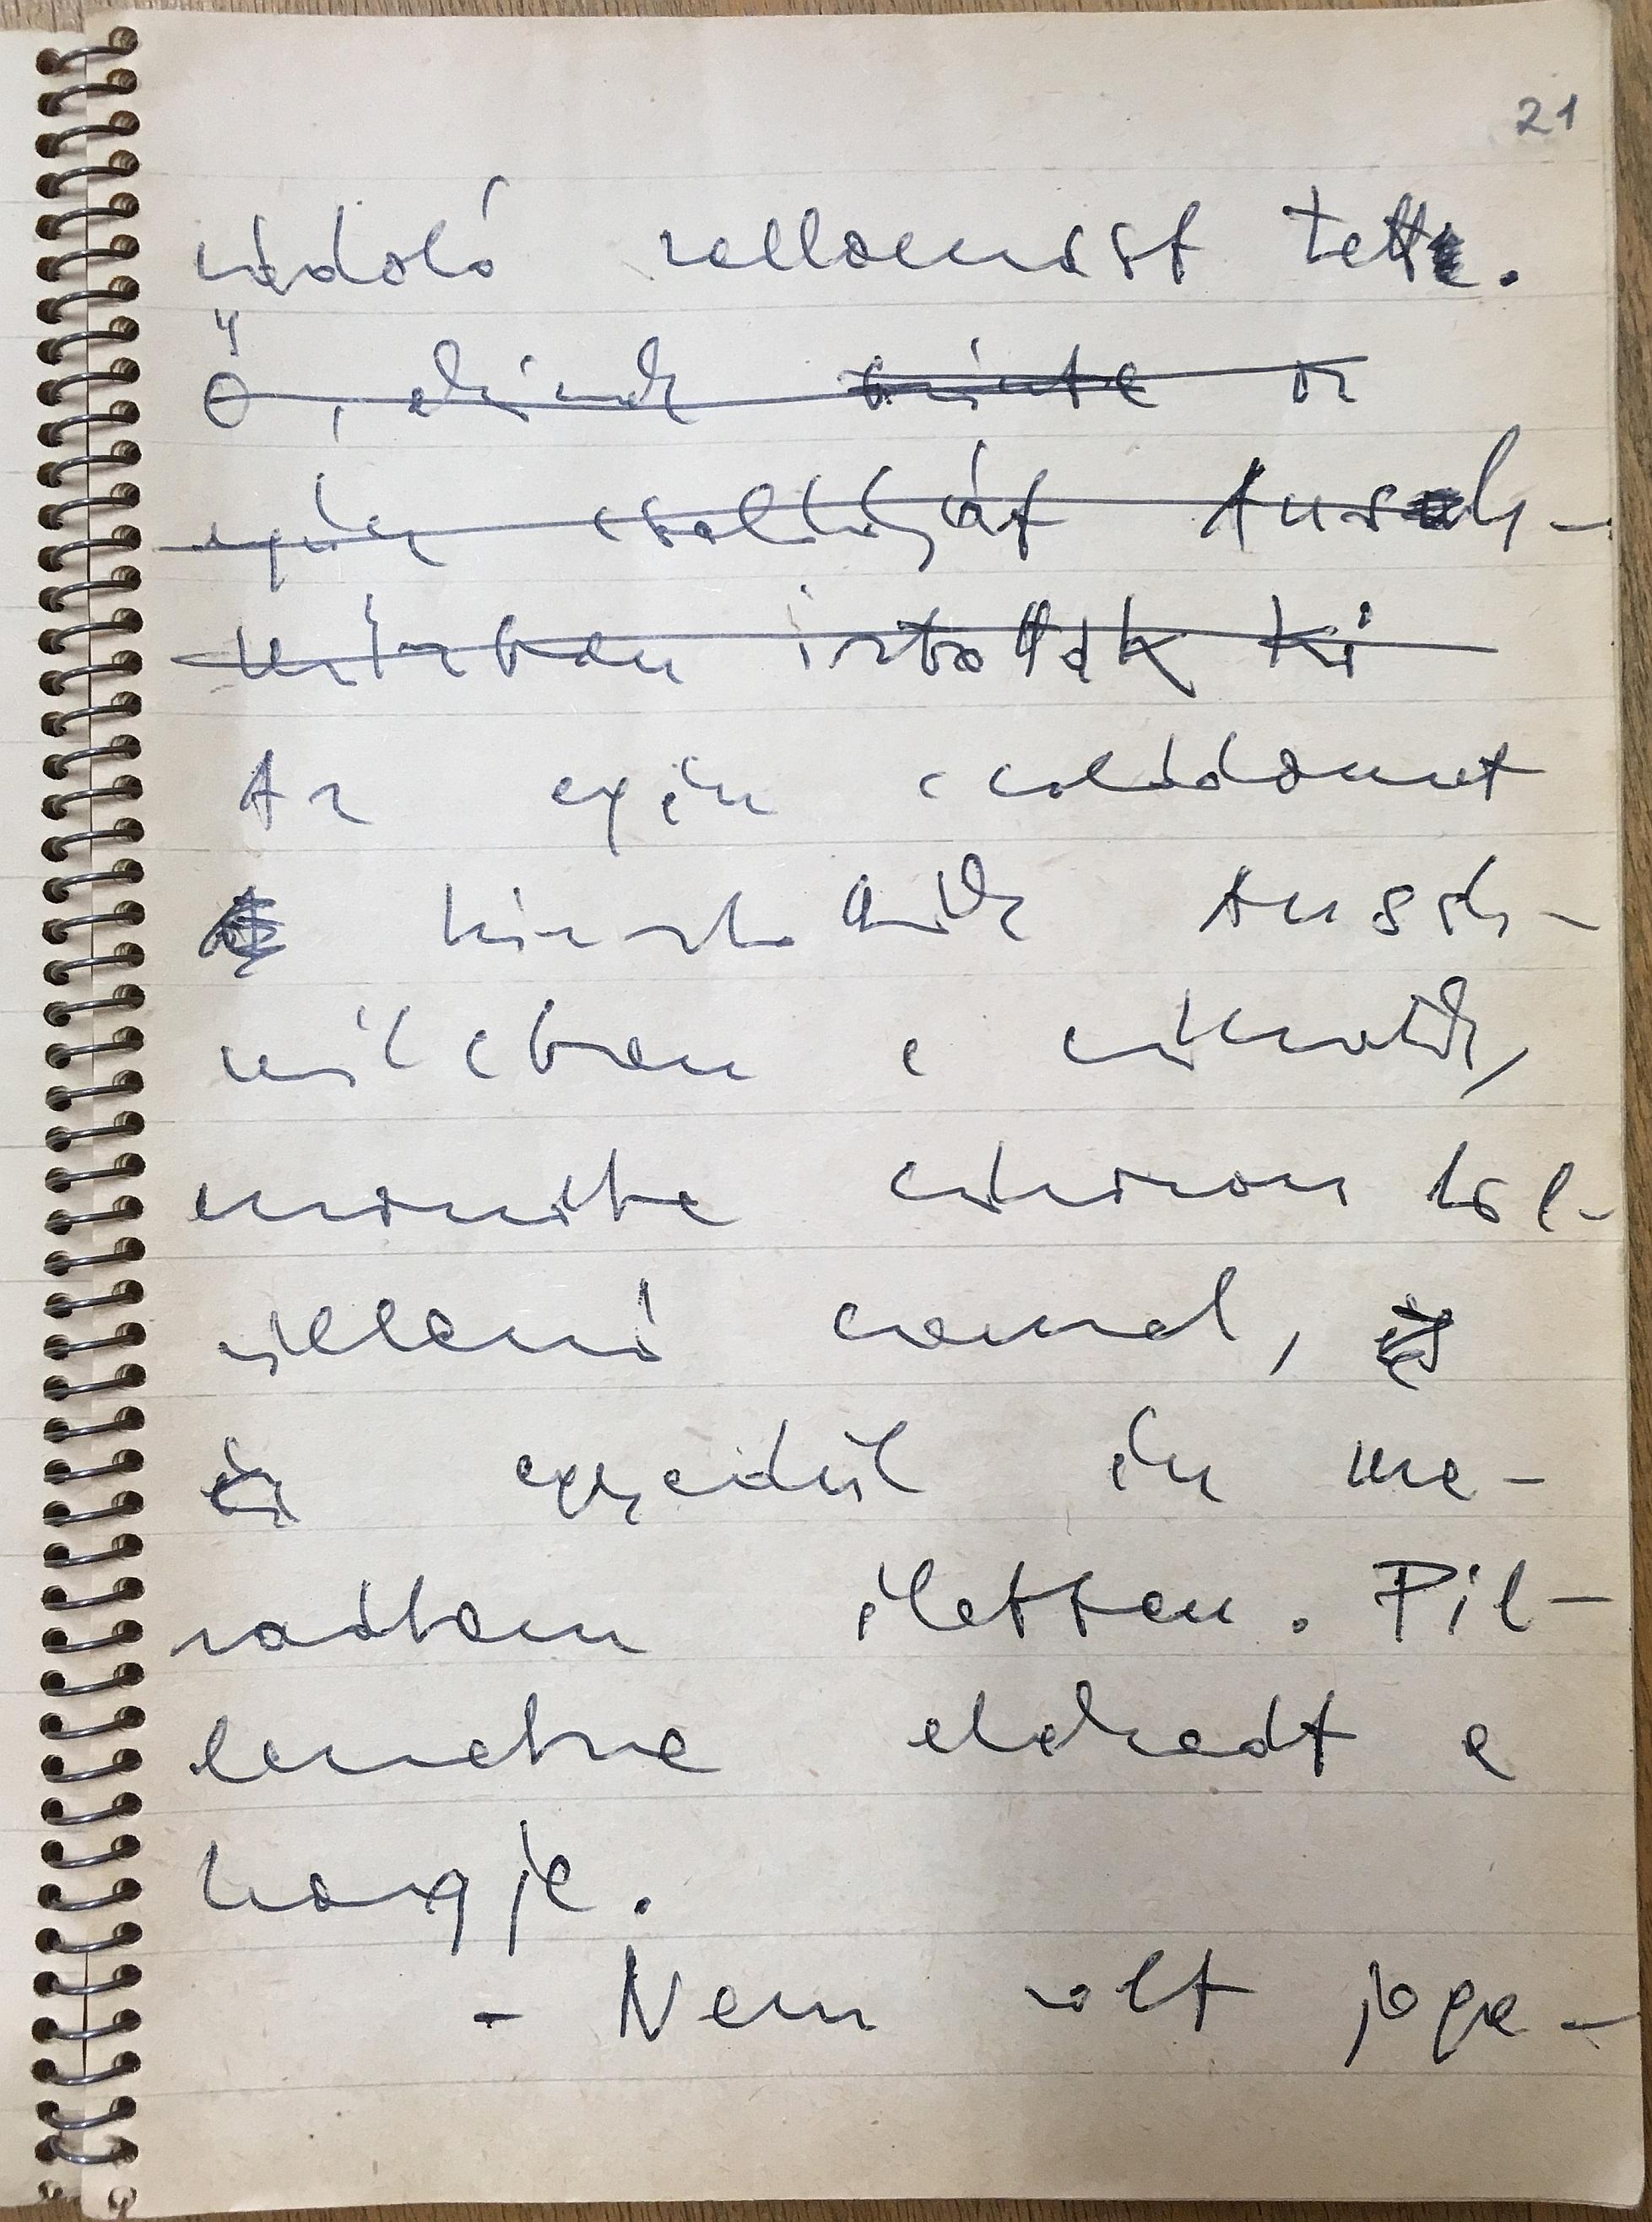 21
vádoló vallomást tett.
Ő, akinek szinte az
egész családját Ausch-
witzban irtották ki
Az egész családomat
kiirtották Ausch-
witzban a
mondta fel-
villanó szemmel,
egyedül én ma-
radtam életben. Pil-
lanatra elakadt a
hangja.
- Nem volt joga-